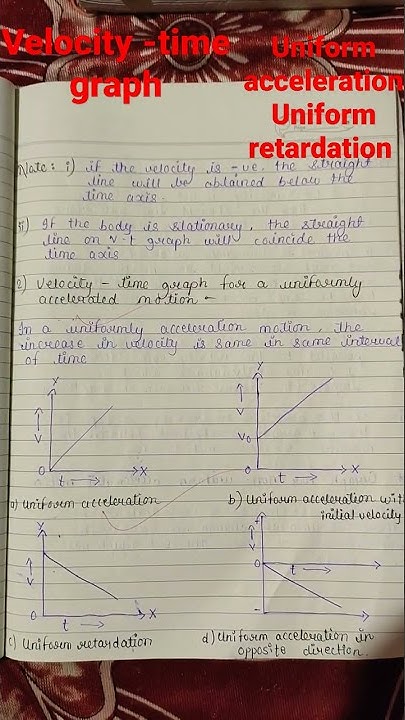 Velocity -time
graph
Uniform
acceleration
Uniform
retardation
Note: i) if the velocity is -ve. the straight
line will be obtained below the
time axis.
ii) If the body is stationary, the straight
line on v-t graph will coincide the
time axis
2) Velocity - time graph for a uniformly
accelerated motion -
In a uniformly acceleration motion, the
increase in velocity is same in same interval
of time
Y
V
O
t
X
a) Uniform acceleration
Y
V
V0
O
t
X
b) Uniform acceleration wit
initial velocity
Y
V
O
t
X
c) Uniform retardation
+
V
O
t
-
d) Uniform acceleration in
opposite direction.